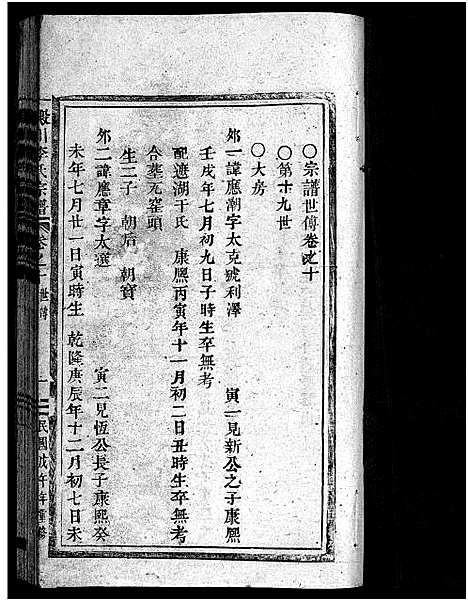 〇宗譜世傳卷之十
〇第十九世
〇大房
邜一諱應潮字太克號利澤 寅一見新公之子康熈
壬戌年七月初九日子時生卒無考
配遊湖干氏 康熈丙寅年十一月初二日丑時生卒無考
合塟瓦窑頭
生二子 朝后 朝寶
邜二諱應章字太選 寅二見恆公長子康熈癸
未年七月廿一日寅時生 乾隆庚辰年十二月初七日未
李氏宗譜 卷之十 世傳 一 民國戊午年重修